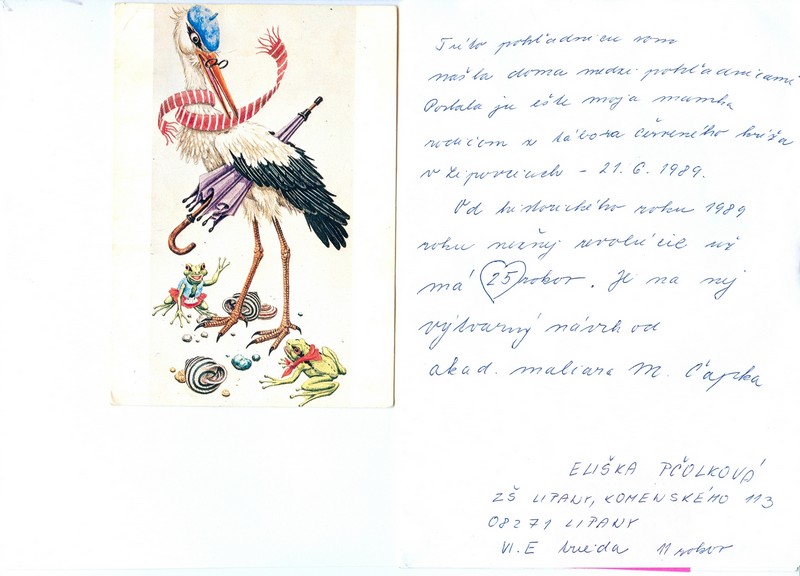 Túto pohľadnicu som
našla doma medzi pohľadnicami
Poslala ju ešte moja mamka
rodičom z tábora červeného kríža
v Lipovciach - 21. 6. 1989.
Od historického roku 1989
roku nežnej revolúcie už
má 25 rokov. Je na nej
výtvarný návrh od
akad. maliara M. Čapka
ELIŠKA PČOLKOVÁ
ZŠ LIPANY, KOMENSKÉHO 113
08271 LIPANY
VI. E trieda 11 rokov